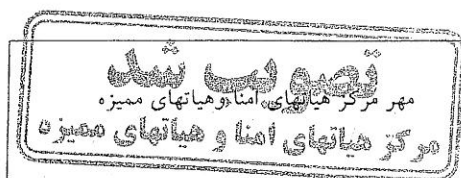 تصویب شد
مهر مرکز هیاتهای امنا وهیاتهای ممیزه
مرکز هیاتهای امنا و هیاتهای ممیزه